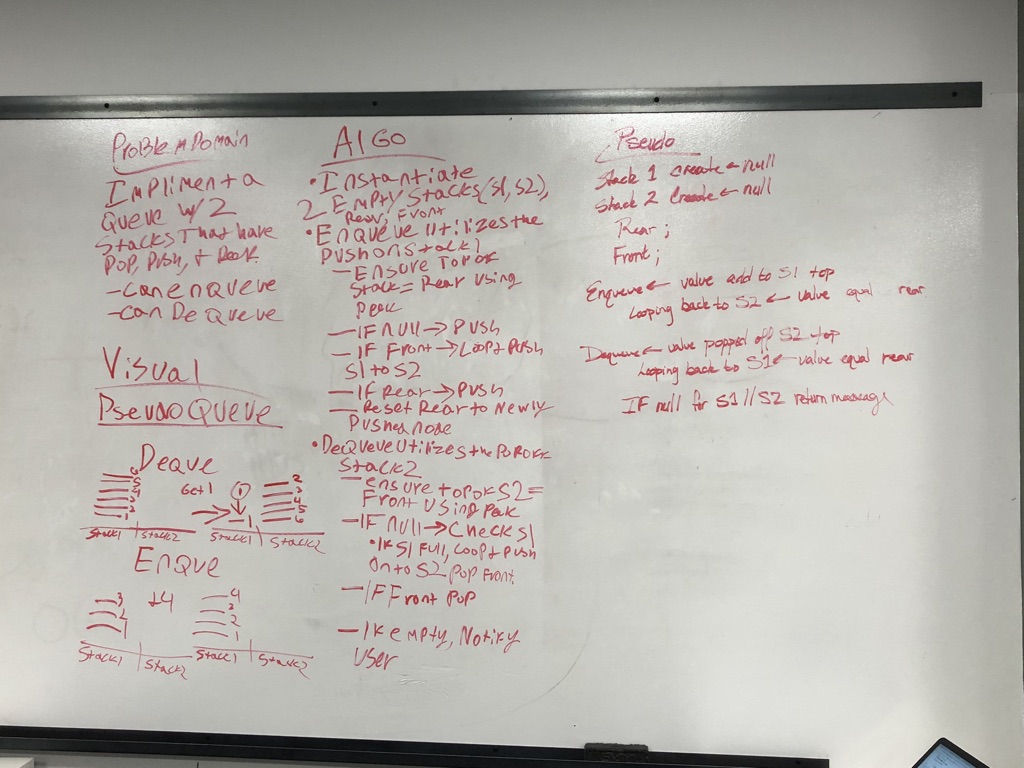 Problem Domain
Impliment a
Queue w/2
Stacks That have
Pop, Push, + Peak.
- can enqueue
- can DeQueue
Visual
Pseudo Queue
Deque
6
5
4
3
2
1
Get 1
1
1
2
3
4
5
6
Stack1 Stack2
Stack1 Stack2
Enque
3
2
1
+4
4
3
2
1
Stack1 Stack2
Stack1 Stack2
Algo
• Instantiate
2 Empty Stacks (S1, S2),
Rear, Front
• Enqueue Utilizes the
Push on stack1
- Ensure Top of
Stack = Rear Using
Peak
- IF Null → Push
- IF Front → Loop + Push
S1 to S2
- IF Rear → Push
- Reset Rear to Newly
Pushed node
• DeQueue Utilizes the Pop of
Stack2
- ensure top of S2 =
Front Using Peak
- IF Null → Check S1
• If S1 Full, Loop + Push
Onto S2 Pop Front.
- IF Front Pop
- If empty, Notify
User
Pseudo
Stack 1 create ← null
Stack 2 Create ← null
Rear ;
Front ;
Enqueue ← value add to S1 top
Looping back to S2 ← value equal rear
Dequeue ← value popped off S2 top
Looping back to S1 ← value equal rear
IF null for S1//S2 return message